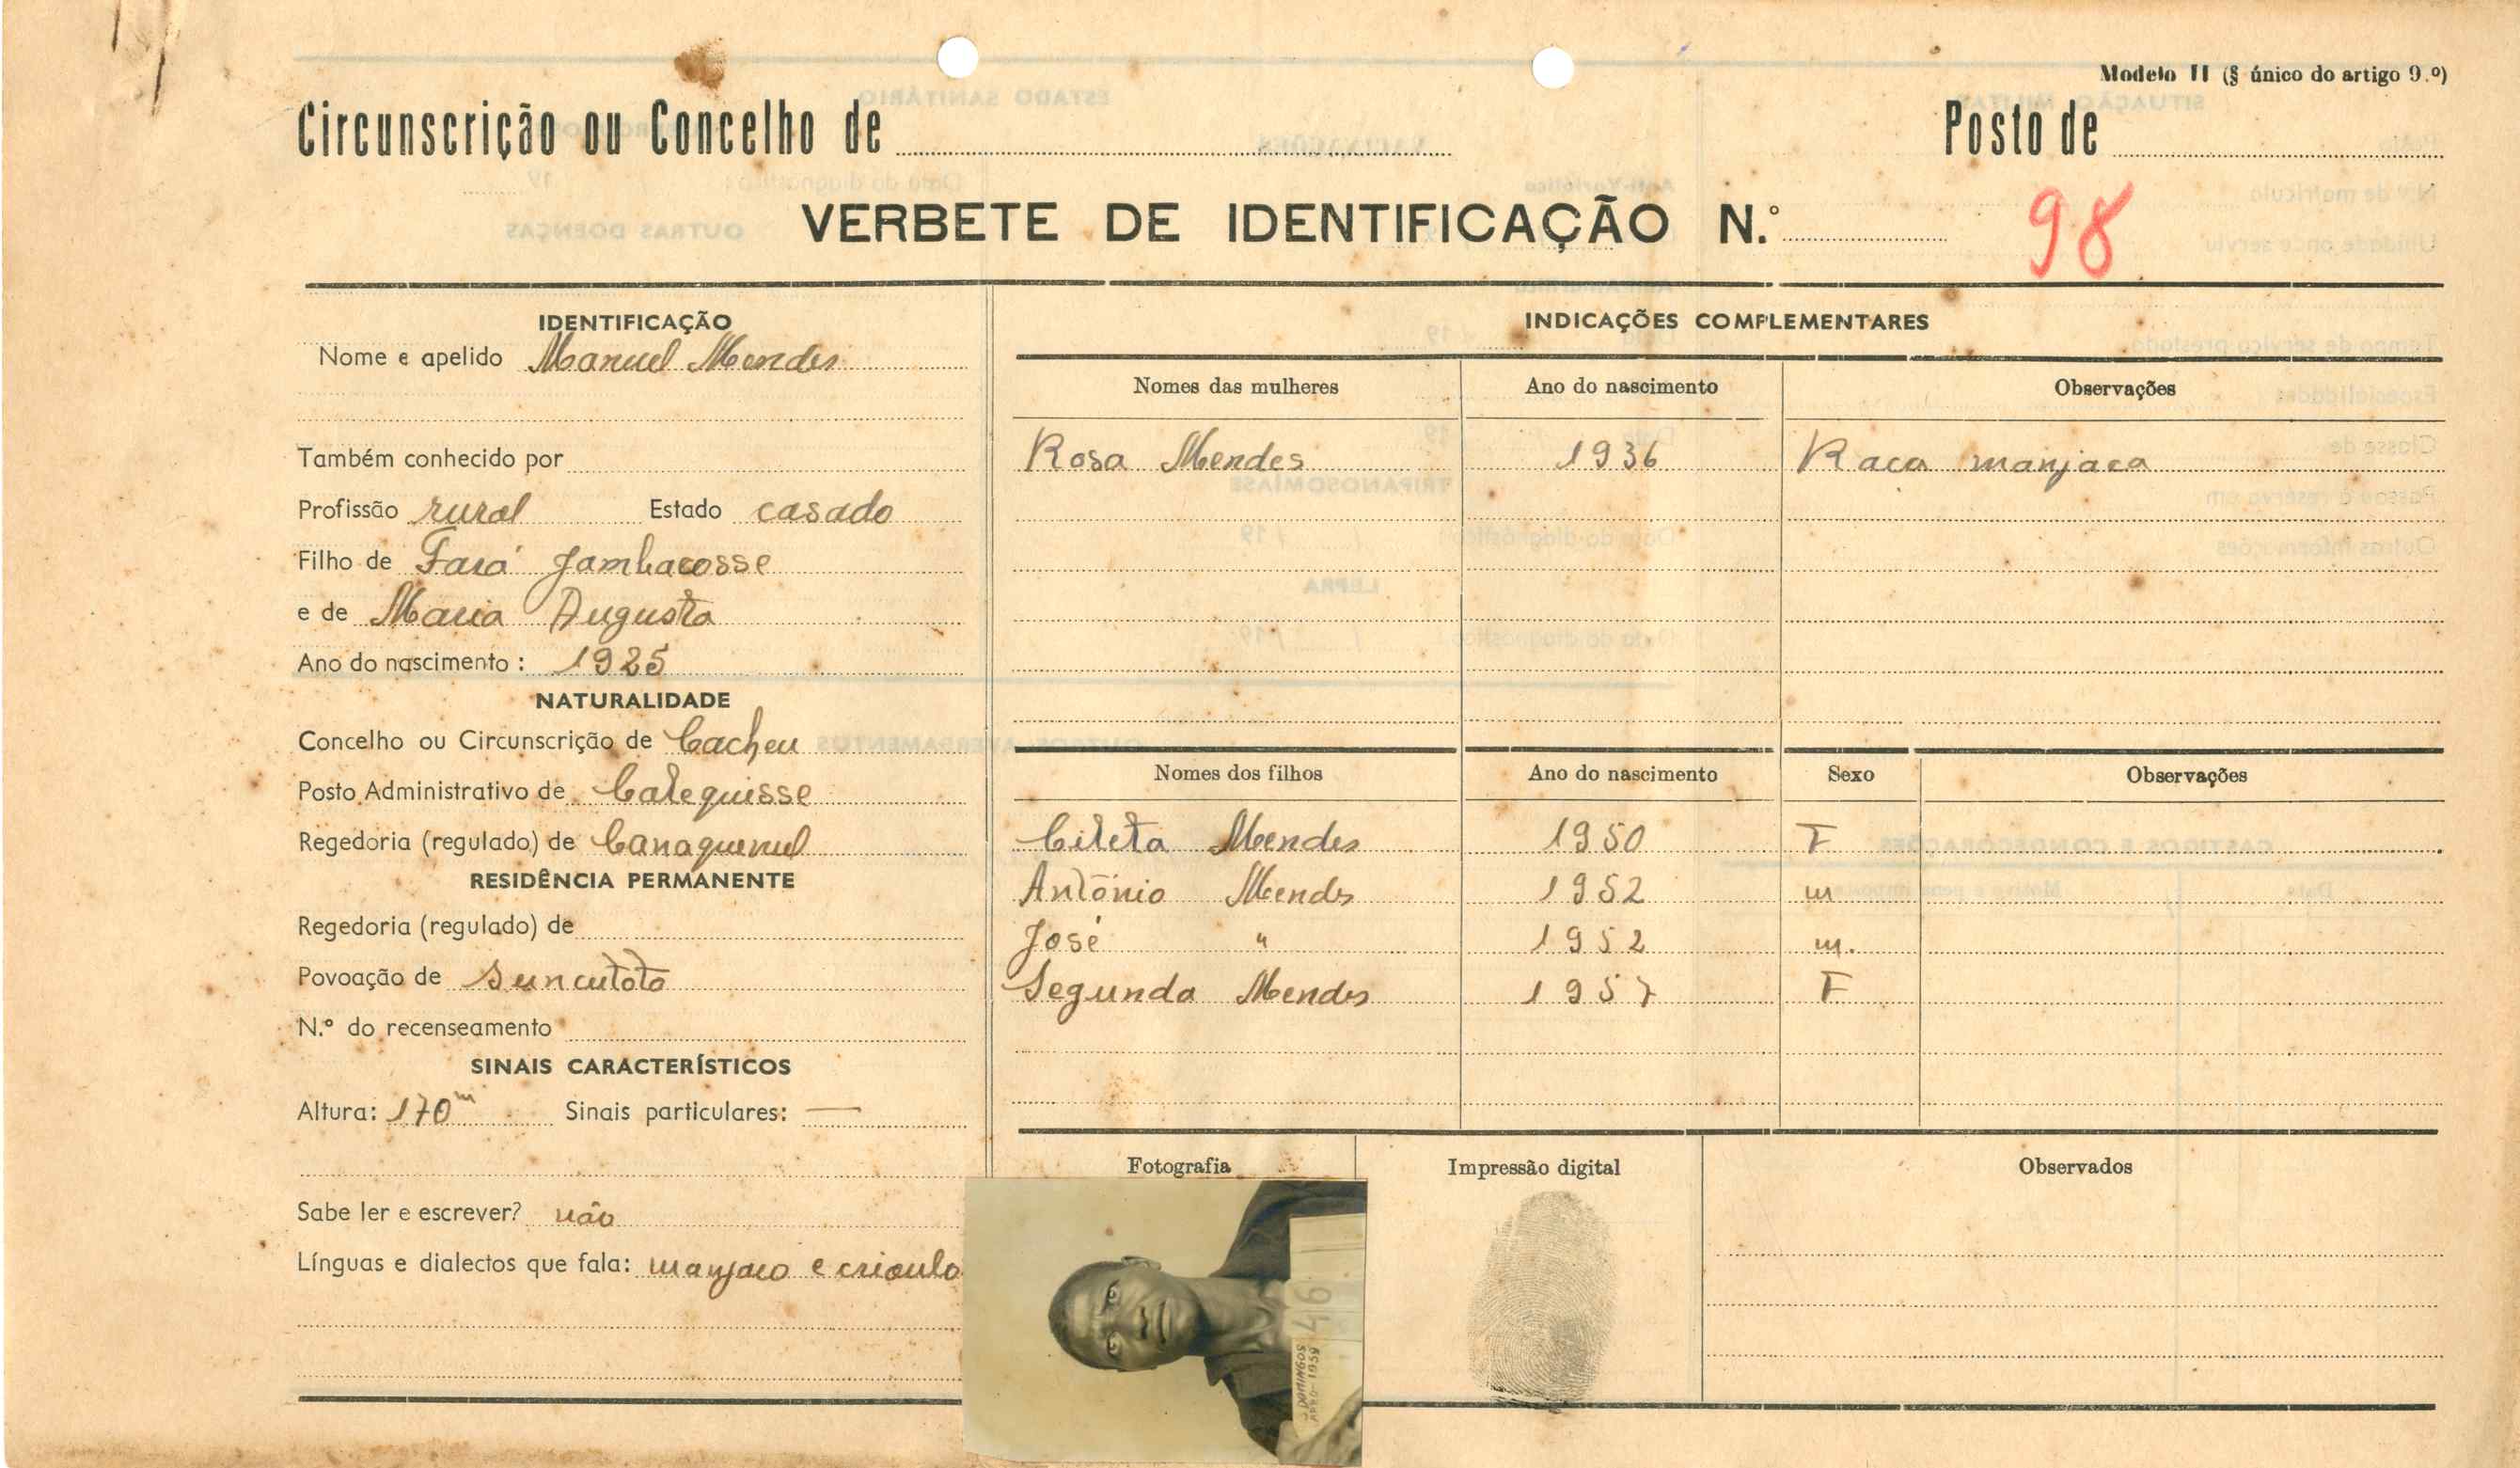 Modelo II (§ único do artigo 9.º)
Circunscrição ou Concelho de
Posto de
VERBETE DE IDENTIFICAÇÃO N.º 98
IDENTIFICAÇÃO
Nome e apelido Manuel Mendes
Também conhecido por
Profissão rural Estado casado
Filho de Fará Jambacosse
e de Maria Augusta
Ano do nascimento: 1925
NATURALIDADE
Concelho ou Circunscrição de Cacheu
Posto Administrativo de Calequisse
Regedoria (regulado) de
RESIDÊNCIA PERMANENTE
Regedoria (regulado) de
Povoação de Suncutoto
N.º do recenseamento
SINAIS CARACTERÍSTICOS
Altura: 170m Sinais particulares: —
Sabe ler e escrever? não
Línguas e dialectos que fala: manjaco e crioulo
INDICAÇÕES COMPLEMENTARES
Nomes das mulheres Ano do nascimento Observações
Rosa Mendes 1936 Raca manjaca
Nomes dos filhos Ano do nascimento Sexo Observações
Mendes 1950 F
António Mendes 1952 m
José " 1952 m.
Segunda Mendes 1957 F
Fotografia Impressão digital Observados
46
DOMINGOS
1959